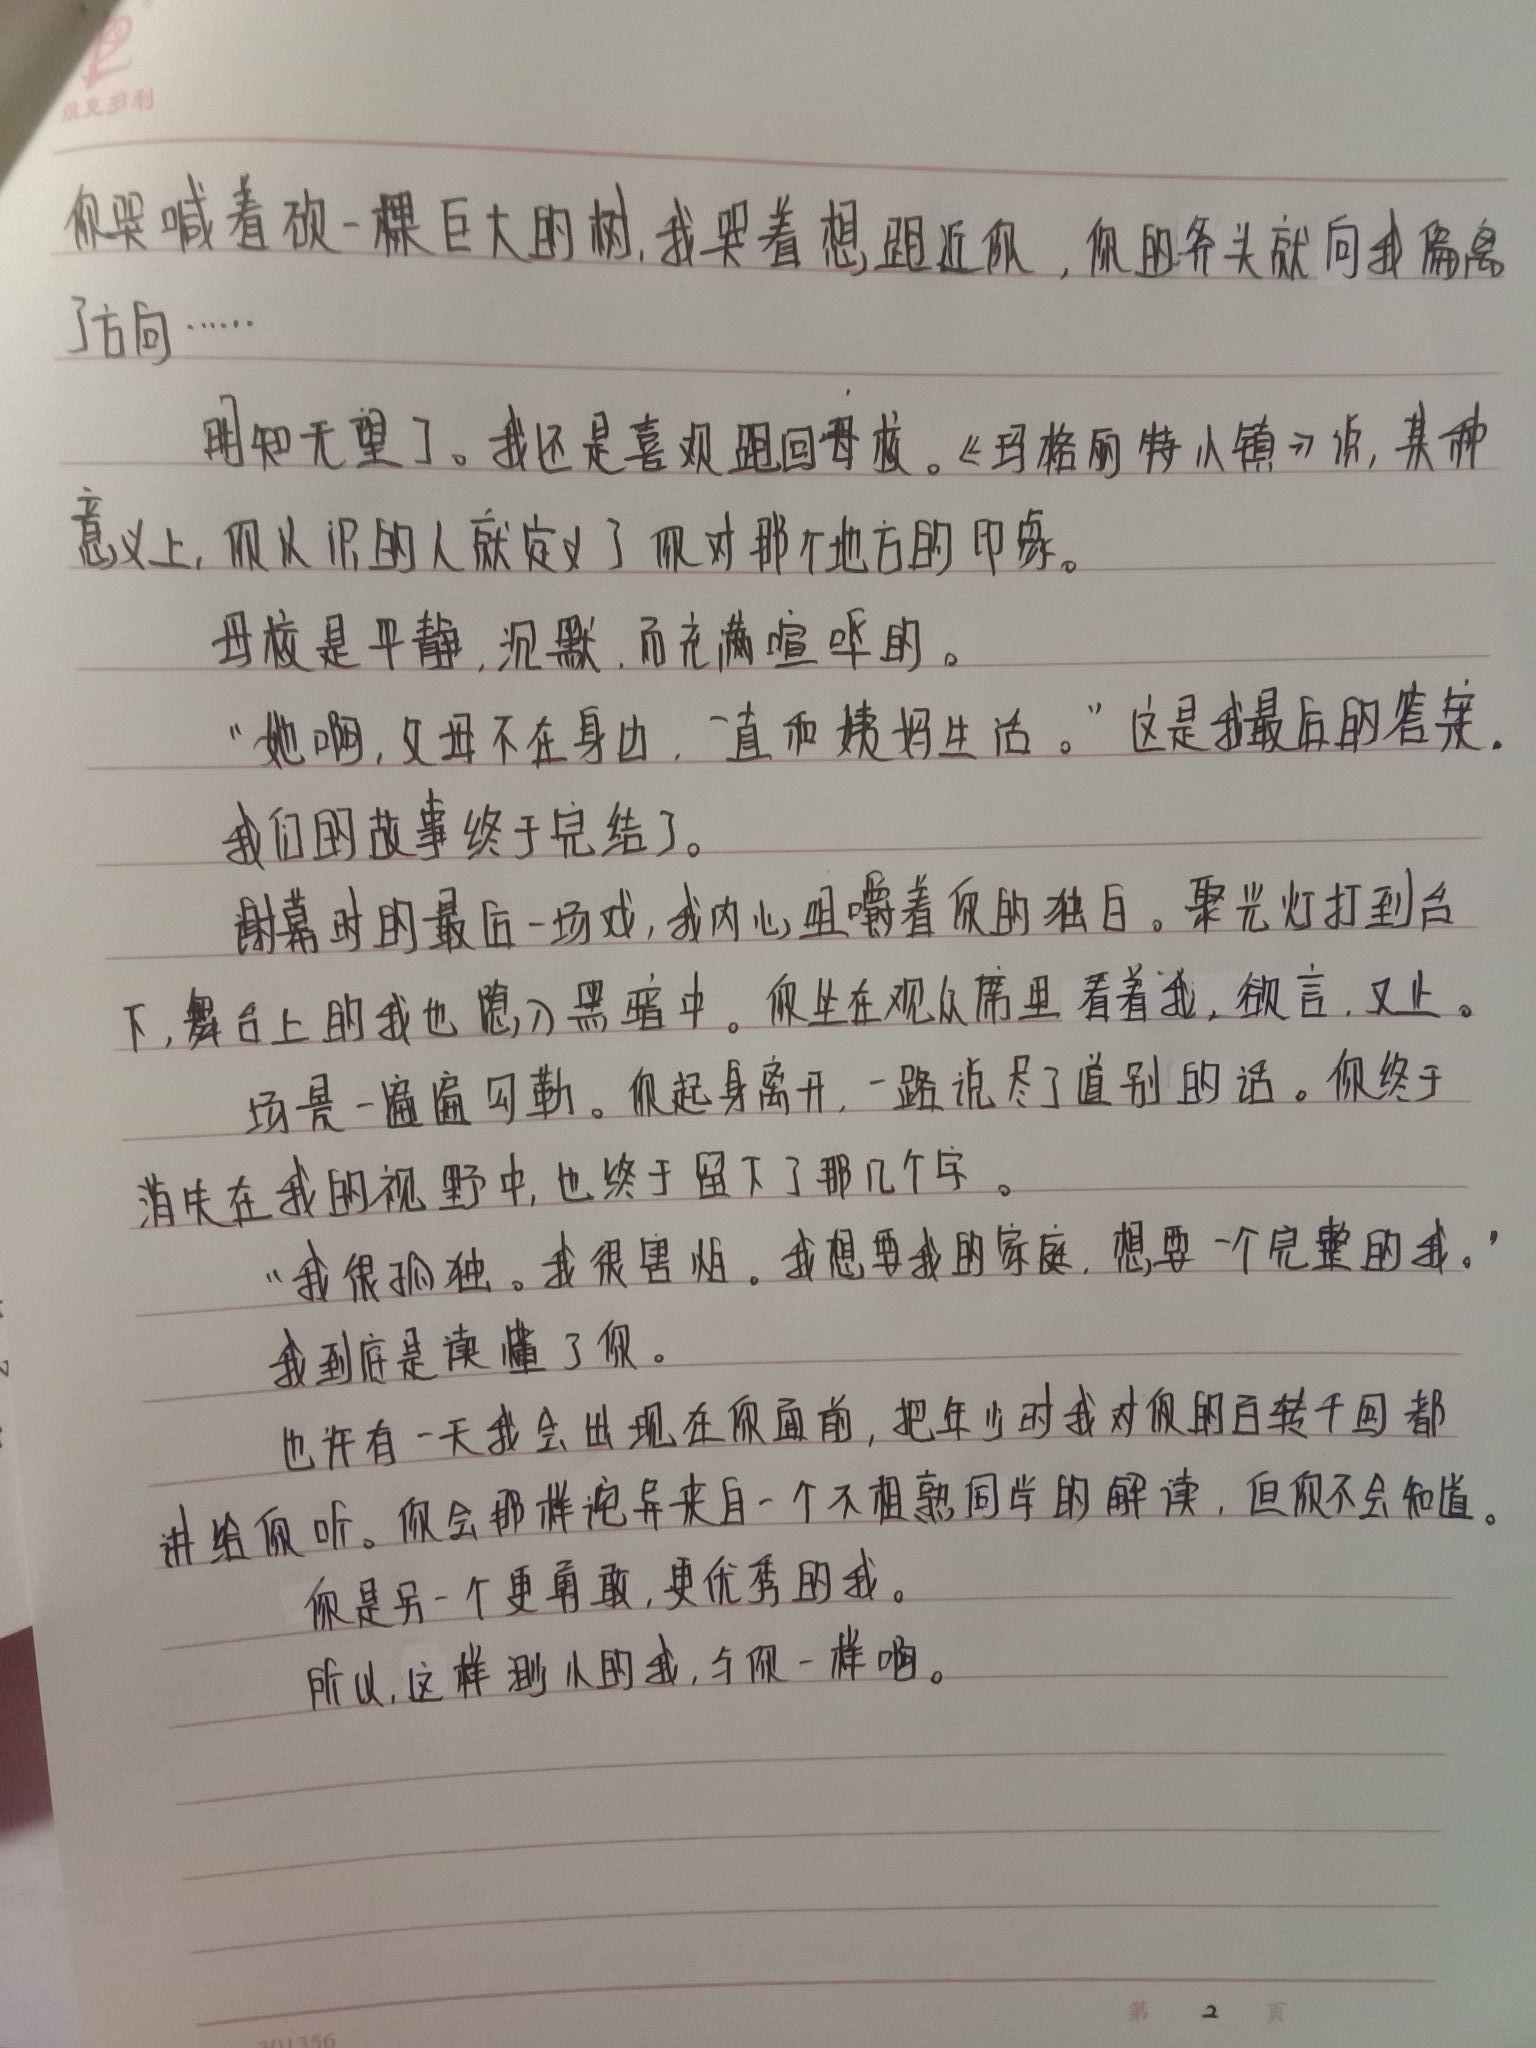 维克多利
你哭喊着砍一棵巨大的树,我哭着想跑近你,你的斧头就向我偏离
了方向……
明知无望了。我还是喜欢跑回母校。《玛格丽特小镇》说,某种
意义上,你认识的人就定义了你对那个地方的印象。
母校是平静,沉默,而充满喧哗的。
“她啊,父母不在身边,一直和姨妈生活。”这是我最后的答案.
我们的故事终于完结了。
谢幕时的最后一场戏,我内心咀嚼着你的独白。聚光灯打到台
下,舞台上的我也隐入黑暗中。你坐在观众席里看着我,欲言,又止。
场景一遍遍勾勒。你起身离开,一路说尽了道别的话。你终于
消失在我的视野中,也终于留下了那几个字。
“我很孤独。我很害怕。我想要我的家庭,想要一个完整的我。”
我到底是读懂了你。
也许有一天我会出现在你面前,把年少时我对你的百转千回都
讲给你听。你会那样诧异来自一个不相熟同学的解读,但你不会知道。
你是另一个更勇敢,更优秀的我。
所以,这样渺小的我,与你一样啊。
第 2 页
301356